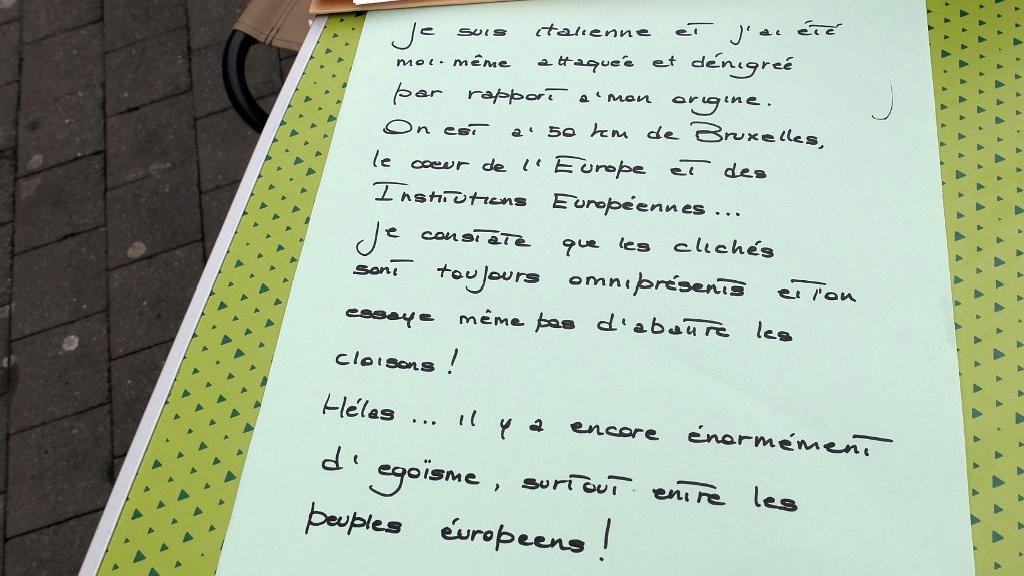 Je suis italienne et j'ai été
moi-même attaquée et dénigreé
par rapport a' mon origine.
On est a' 50 km de Bruxelles,
le cœur de l'Europe et des
Institutions Européennes...
Je constate que les clichés
sont toujours omniprésents et l'on
essaye même pas d'abattre les
cloisons !
Hélas... il y a encore énormément
d'egoïsme, surtout entre les
peuples éuropeens !